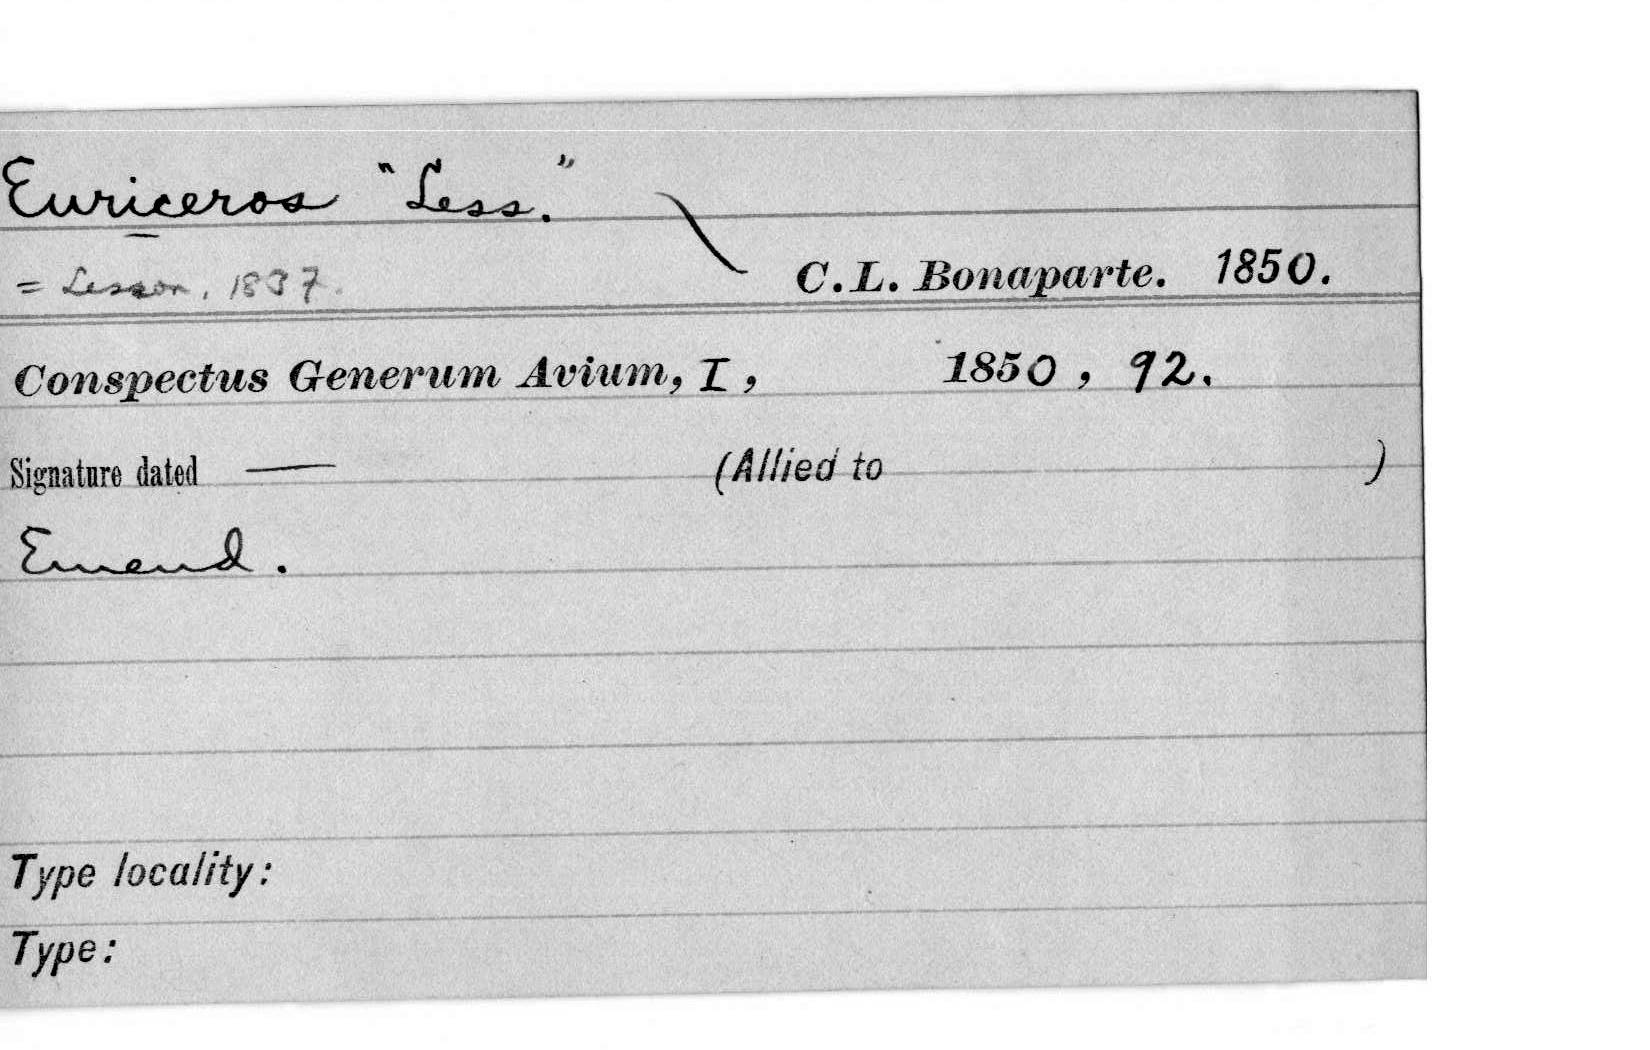 Euriceros "Less."
= Lesson, 1837. C. L. Bonaparte. 1850.
Conspectus Generum Avium, I, 1850, 92.
Signature dated — (Allied to )
Emend.
Type locality:
Type: